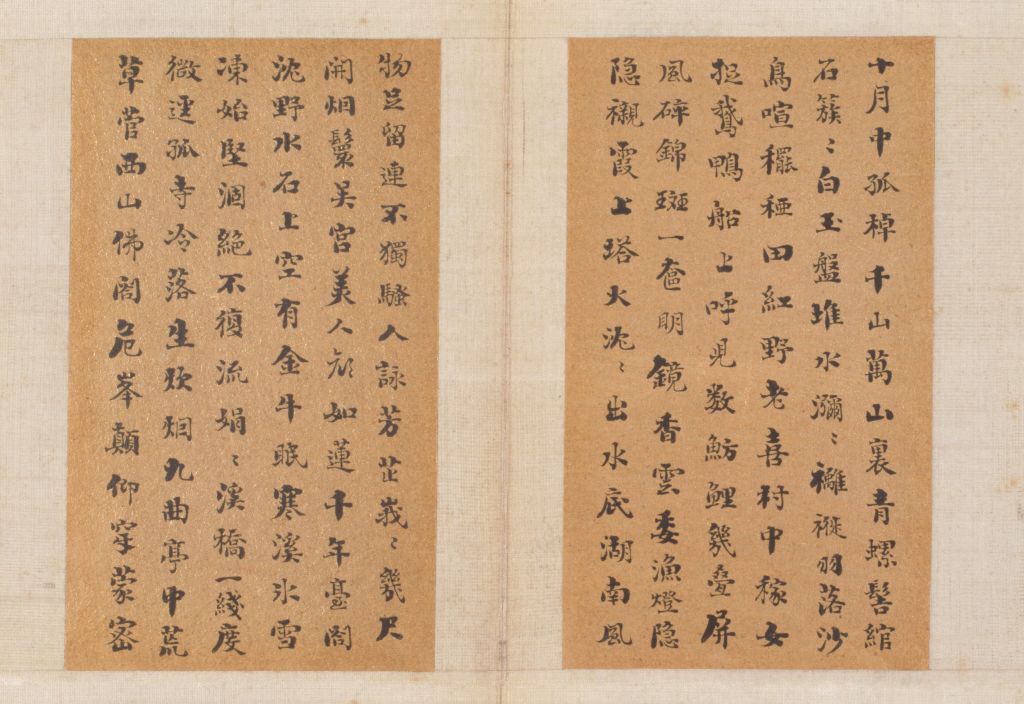 十月中孤棹千山萬山裏青螺髻綰
石簇〻白玉盤堆水瀰〻襳褷羽落沙
鳥喧䆉稏田紅野老喜村中稼女
捉鵞鴨船上呼児数魴鯉幾疊屏
風碎錦斑一奩明鏡香雲委漁燈隐
隐襯霞上塔火沈〻出水底湖南風
物足留連不獨騷人詠芳芷峩〻幾尺
開烟鬟吴宮美人顔如蓮千年臺閣
沈野水石上空有金牛眠寒溪氷雪
凍始堅涸絶不復流娟〻溪橋一綫度
微逕孤寺冷落生炊烟九曲亭中荒
草菅西山佛閣危峯顛仰穿蒙密